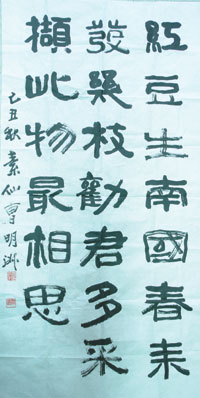 紅豆生南國春来
發幾枝勸君多采
擷此物最相思
己丑秋素仙曹明